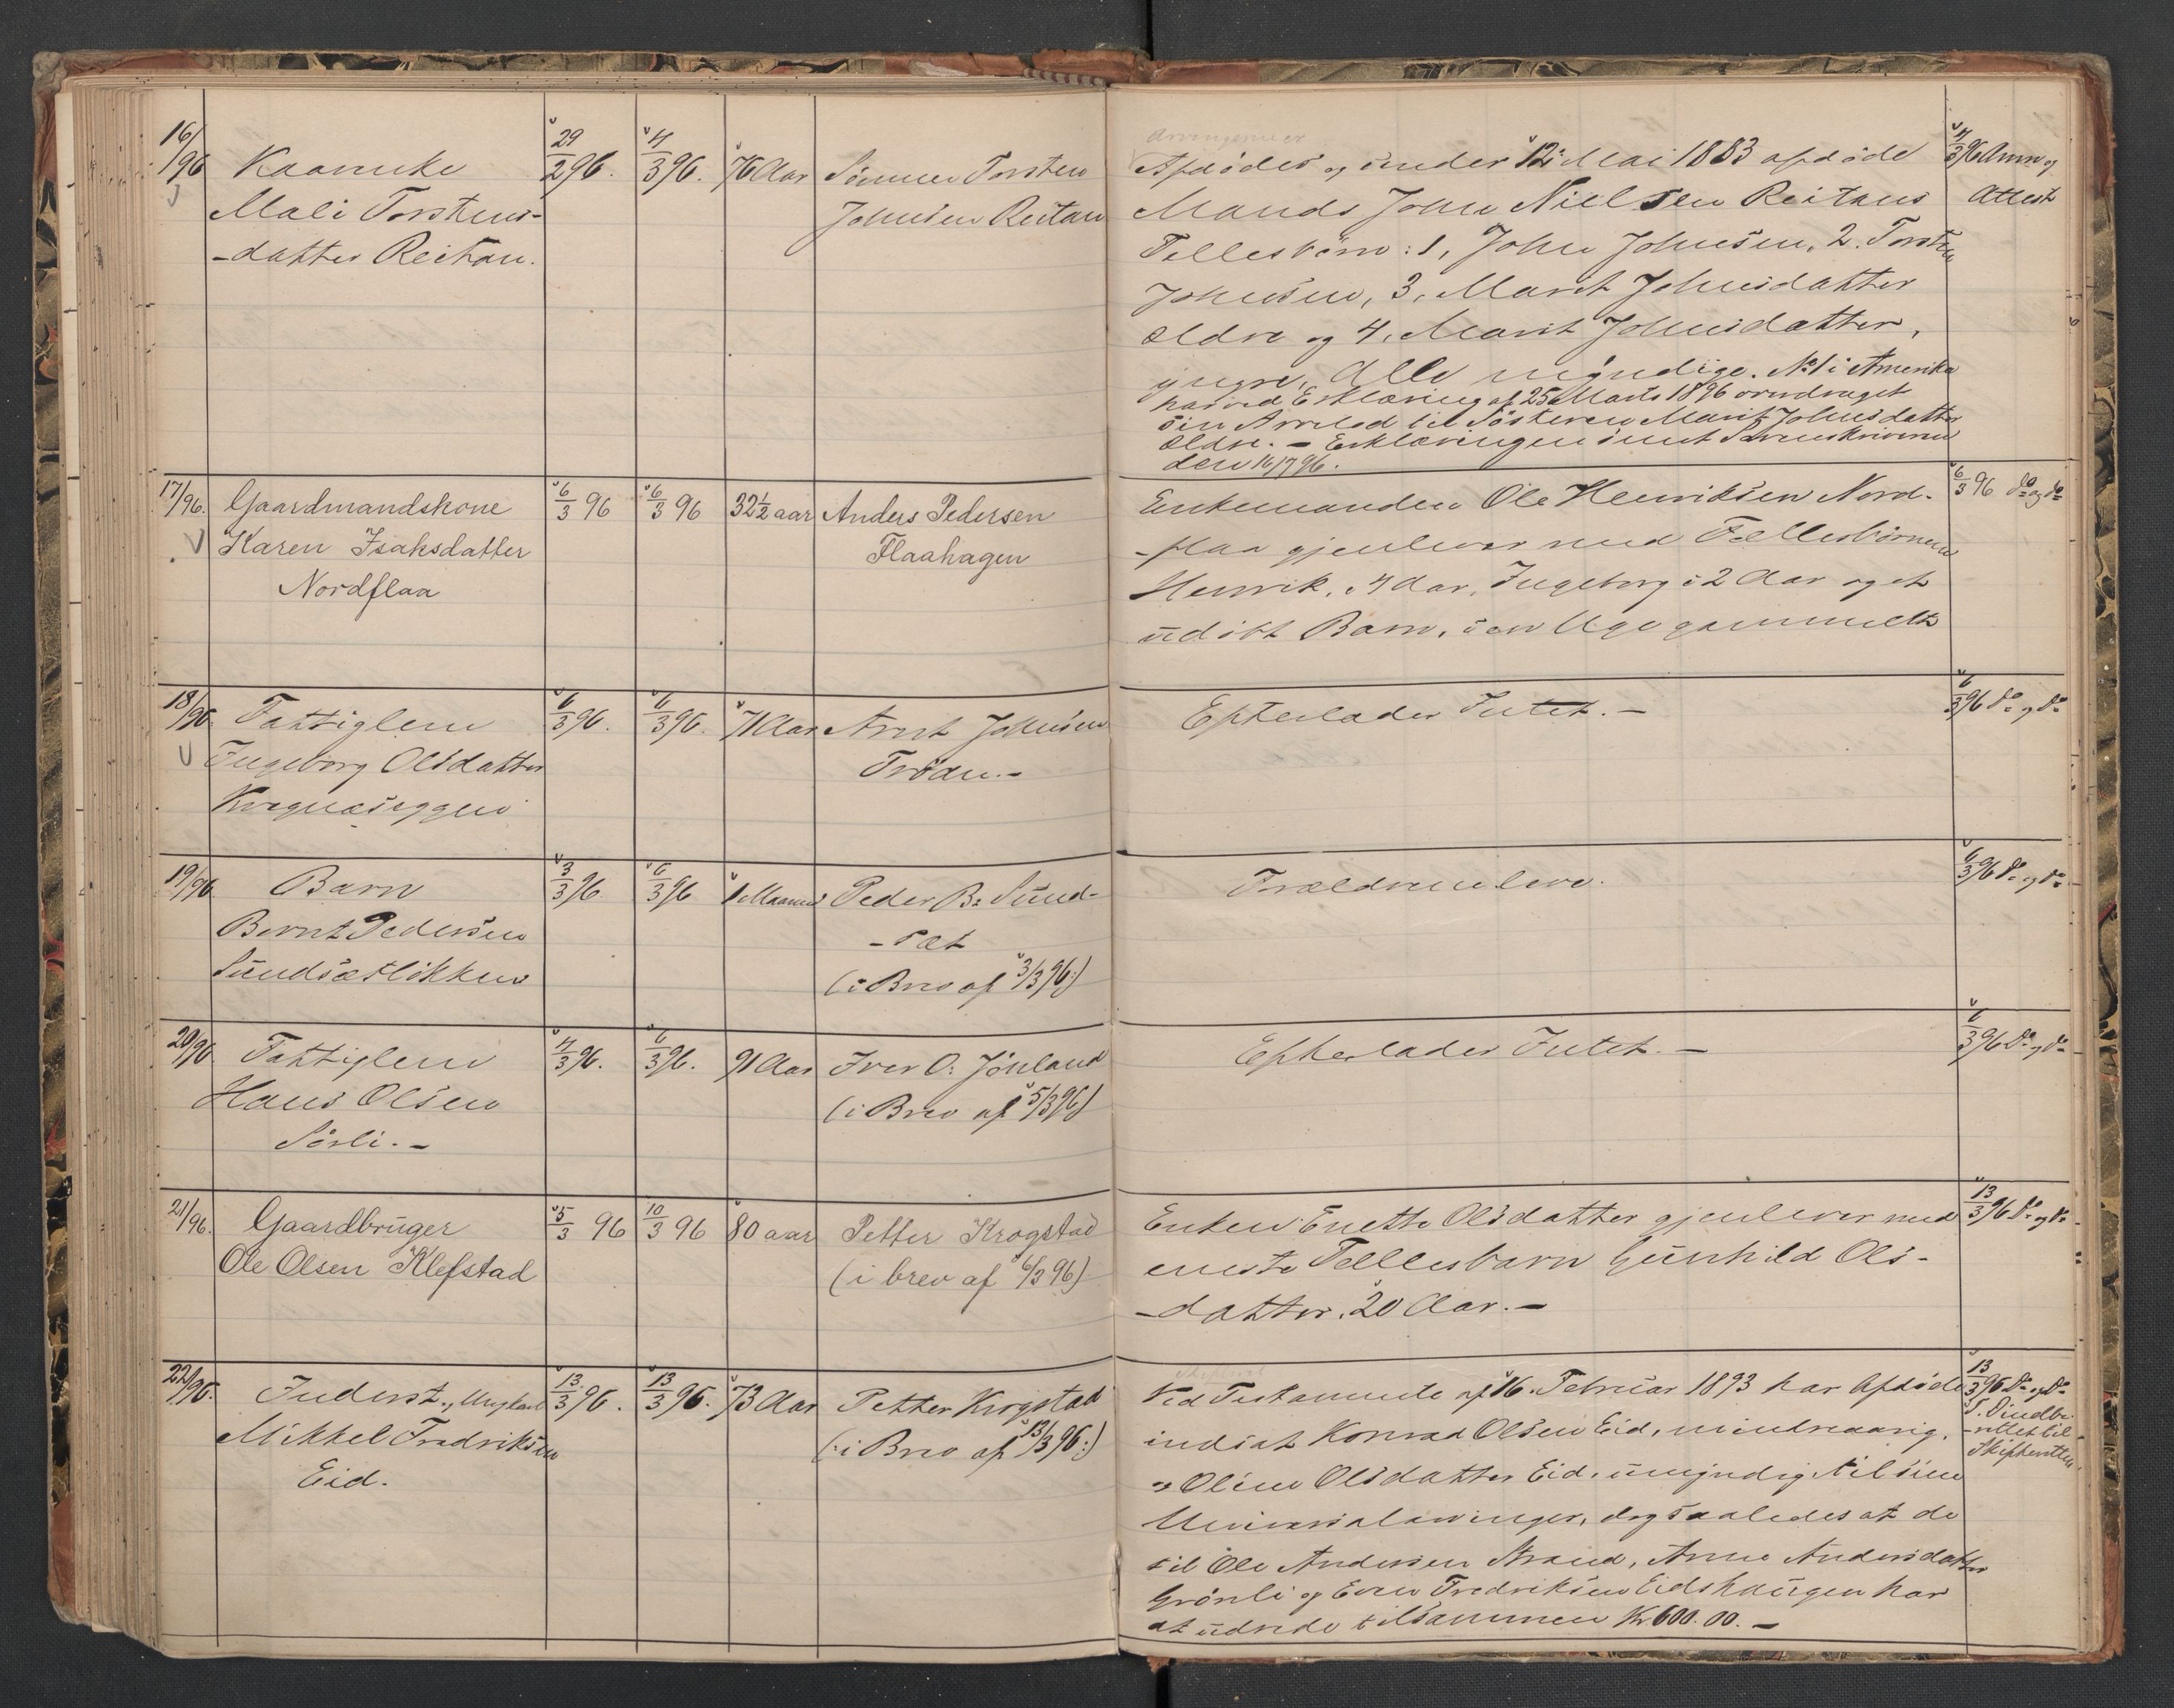 16/96 Kaarenke 29/2 96. 4/3 96. 76 Aar Sønnen Torsten
Mali Torstens- Johnsen Reitan
-datter Reitan.
Arvingerne er
Afdødes og under 12 Mai 1883 afdøde 4/3 96 Anm og
Mands John Nielsen Reitans Attest
Fellesbørn: 1, John Johnsen, 2. Torsten
Johnsen, 3, Marit Johnsdatter
ældre og 4, Marit Johnsdatter,
yngre, Alle myndige. No 1 i Amerika
har ved Erklæring af 25 Marts 1896 overdraget
sin Arvelod til Søsteren Marit Johnsdatter
ældre. - Erklæringen sendt Sorenskriveren
den 16/7 96.
17/96. Gaardmandskone 6/3 96 6/3 96 32½ aar Anders Pedersen
Karen Isaksdatter Flaahagen
Nordflaa
Enkemanden Ole Henriksen Nord- 6/3 96 do og do
-flaa gjenlever med Fellesbørnene
Henrik, 4 Aar, Ingeborg 2 Aar og et
udøbt Barn, en Uge gammelt
18/96 Fattiglem 6/3 96. 6/3 96. 71 Aar Arnt Johnsen
Ingeborg Olsdatter Trøen.-
Kregnæseggen
Efterlader Intet.- 6/3 96 do og do
19/96 Barn 3/3 96 6/3 96 1 Maaned Peder B. Sund-
Bernt Pedersen -sæt
Sundsætløkken (i Brev af 3/3 96)
Forældrene leve. 6/3 96 do og do
20/96 Fattiglem 4/3 96. 6/3 96. 91 Aar Iver O. Jønland
Hans Olsen (i Brev af 5/3 96)
Sørli.-
Efterlader Intet.- 6/3 96 do og do
21/96. Gaardbruger 5/3 96 10/3 96 80 aar Petter Krogstad
Ole Olsen Klefstad (i brev af 6/3 96)
Enken Enette Olsdatter gjenlever med 13/3 96 do og do
eneste Fellesbarn Gunhild Ols-
-datter, 20 Aar.-
22/96. Inderst, Ungkarl 13/3 96. 13/3 96. 73 Aar Petter Krogstad
Mikkel Fredriksen (i Brev af 13/3 96:)
Eid.
Ved Testamente af 16. Februar 1893 har Afdøde 13/3 96 do og do
indsat Konrad Olsen Eid, mindreaarig,
og Oline Olsdatter Eid, umyndig til sine
Universalarvinger, dog saaledes at de
til Ole Andersen Strand, Anne Andersdatter
Grønli og Even Fredriksen Eidshaugen har
at udrede tilsammen Kr. 600.00.-
-ttet til
Skifteretten